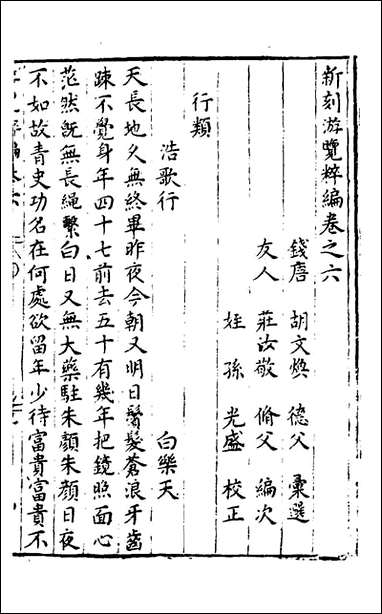 新刻游覽粹編卷之六
錢唐 胡文煥 德父 彙選
友人 莊汝敬 脩父 編次
姪孫 光盛 校正
行類
浩歌行 白樂天
天長地久無終畢昨夜今朝又明日鬢髮蒼浪牙齒
踈不覺身年四十七前去五十有幾年把鏡照面心
茫然旣無長繩繫白日又無大藥駐朱顏朱顏日夜
不如故青史功名在何處欲留年少待富貴富貴不